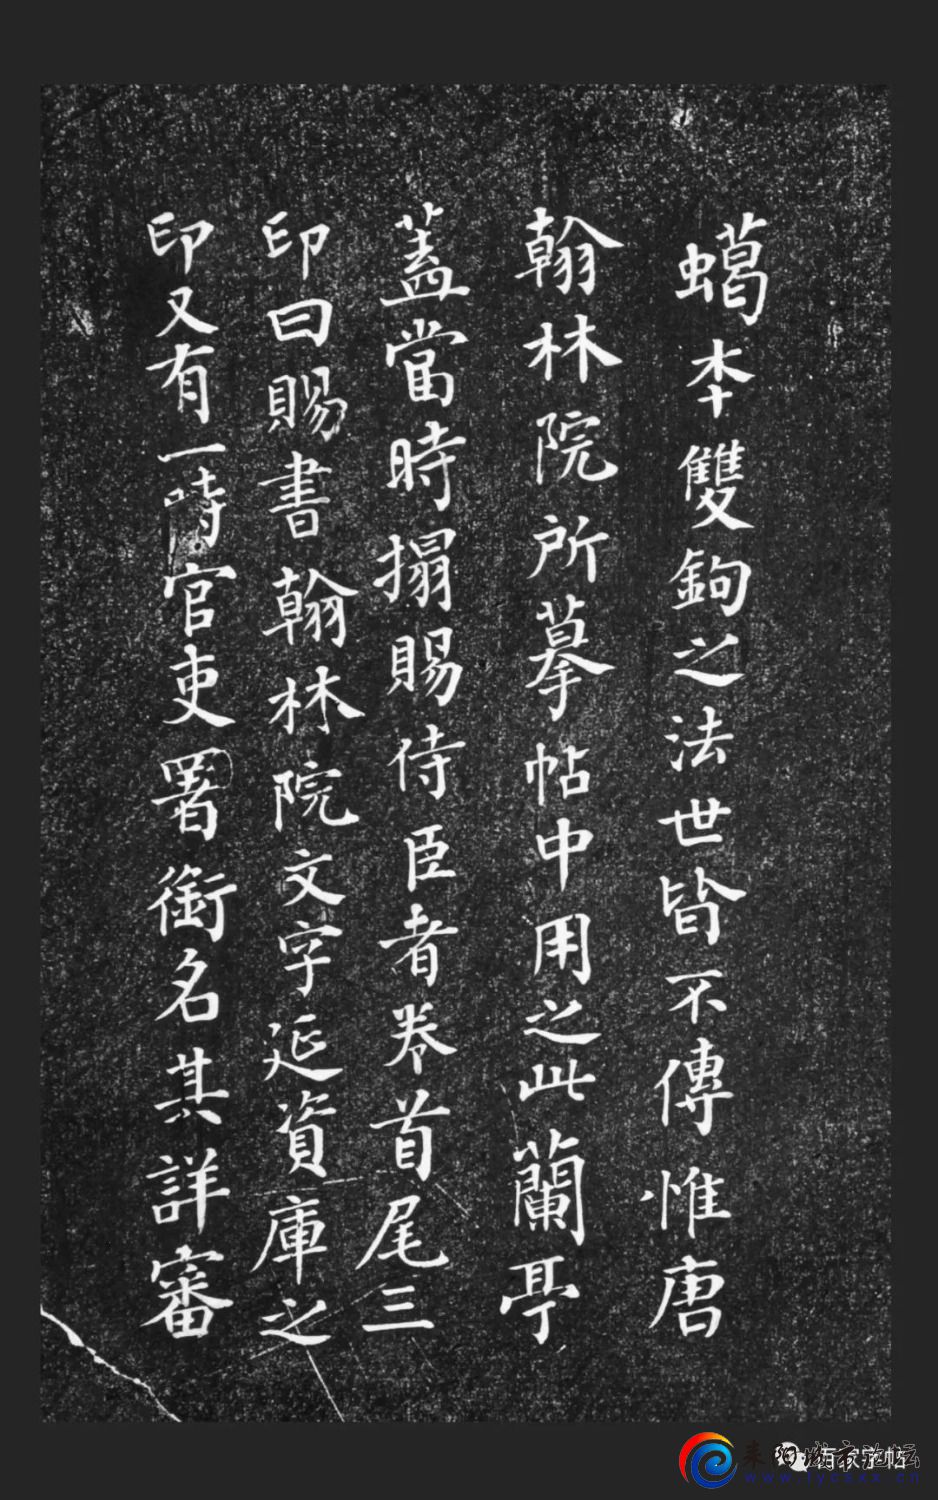 蠟本雙鉤之法世皆不傳惟唐
翰林院所摹帖中用之此蘭亭
蓋當時搨賜侍臣者卷首尾三
印曰賜書翰林院文字延資庫之
印又有一時官吏署銜名其詳審
耒阳城市论坛
www.lycsxx.cn